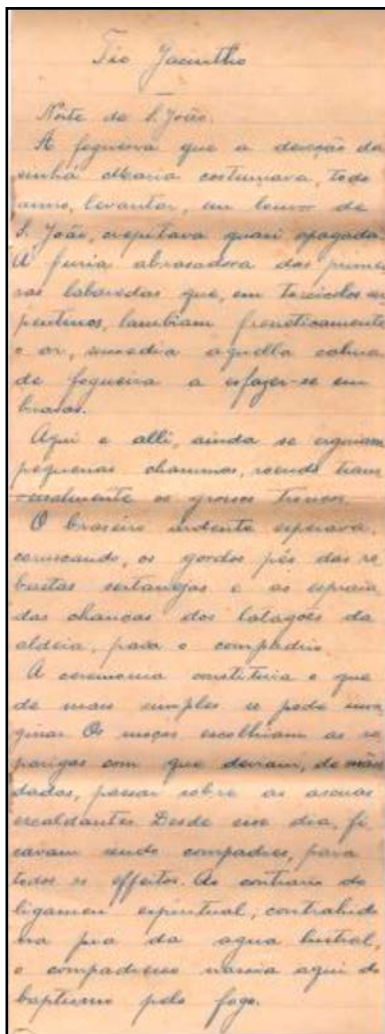 Tio Jacintho
Noite de S. João.
A fogueira que a devoção da
sinhá Maria costumava, todo
anno, levantar, em louvor de
S. João, crepitava quasi apagada.
A furia abrasadora das primei
ras labaredas que, em torcicolos ser
pentinos, lambiam freneticamente
o ar, succedia aquella calma
de fogueira a esfazer-se em
brasas.
Aqui e alli, ainda se erguiam
pequenas chammas, roendo trans
versalmente os grossos troncos.
O braseiro ardente esperava,
coruscando, os gordos pés das ro
bustas sertanejas e as espraia
das chancas dos latagões da
aldeia, para o compadrio.
A ceremonia constituia o que
de mais simples se pode ima
ginar. Os moços escolhiam as ra
parigas com que deviam, de mãos
dadas, passar sobre as ascuas
escaldantes. Desde esse dia, fi
cavam sendo compadres, para
todos os effeitos. Ao contrario do
ligamen espiritual, contrahido
na pia da agua lustral,
o compadresco nascia aqui do
baptismo pelo fogo.